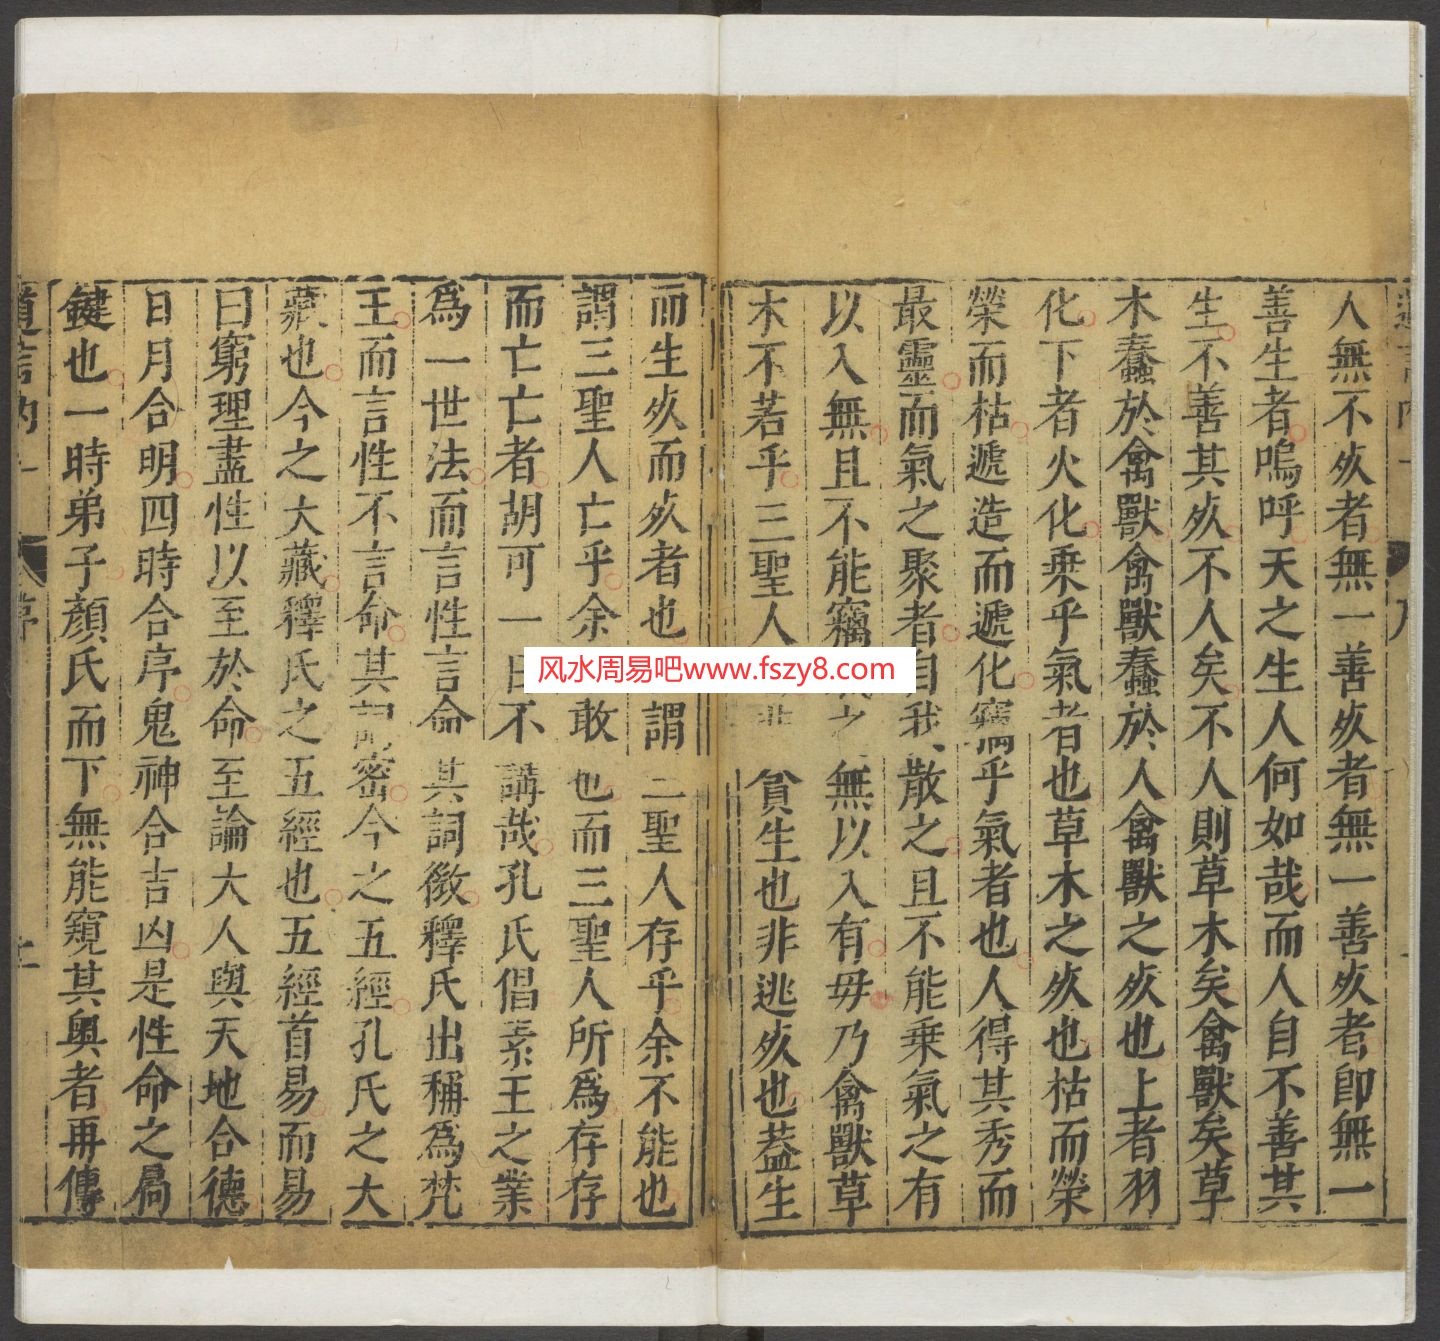 人無不㱙者無一善㱙者無一善㱙者卽無一
善生者嗚呼天之生人何如哉而人自不善其
生不善其㱙不人矣不人則草木矣禽獸矣草
木蠢於禽獸禽獸蠢於人禽獸之㱙也上者羽
化下者火化乗乎氣者也草木之㱙也枯而榮
榮而枯遞造而遞化竊乎氣者也人得其秀而
最靈而氣之聚者自我散之且不能乗氣之有
以入無且不能竊之無以入有毋乃禽獸草
木不若乎三聖人非貪生也非逃㱙也葢生
而生㱙而㱙者也謂三聖人存乎余不能也
謂三聖人亡乎余敢也而三聖人所爲存存
而亡亡者胡可一日不講哉孔氏倡素王之業
爲一世法而言性言命其詞微釋氏出稱爲梵
王而言性不言命其詞密今之五經孔氏之大
藏也今之大藏釋氏之五經也五經首易而易
曰窮理盡性以至於命至論大人與天地合德
日月合明四時合序鬼神合吉凶是性命之扃
鍵也一時弟子顏氏而下無能窺其奥者再傳
道言內
序
风水周易吧www.fszy8.com